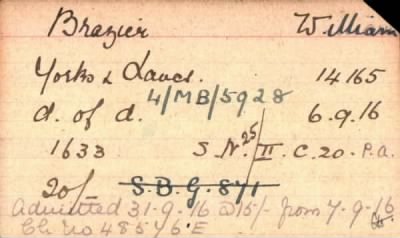 Brazier William
Yorks & Lancs. 14165
d. of d. 4/MB/5928 6.9.16
1633 S.N. 25/II. C. 20. P.a.
20/ S.B.G. 871
Admitted 31-9-16 @ 15/- from 7-9-16
Ch. no 48546 E